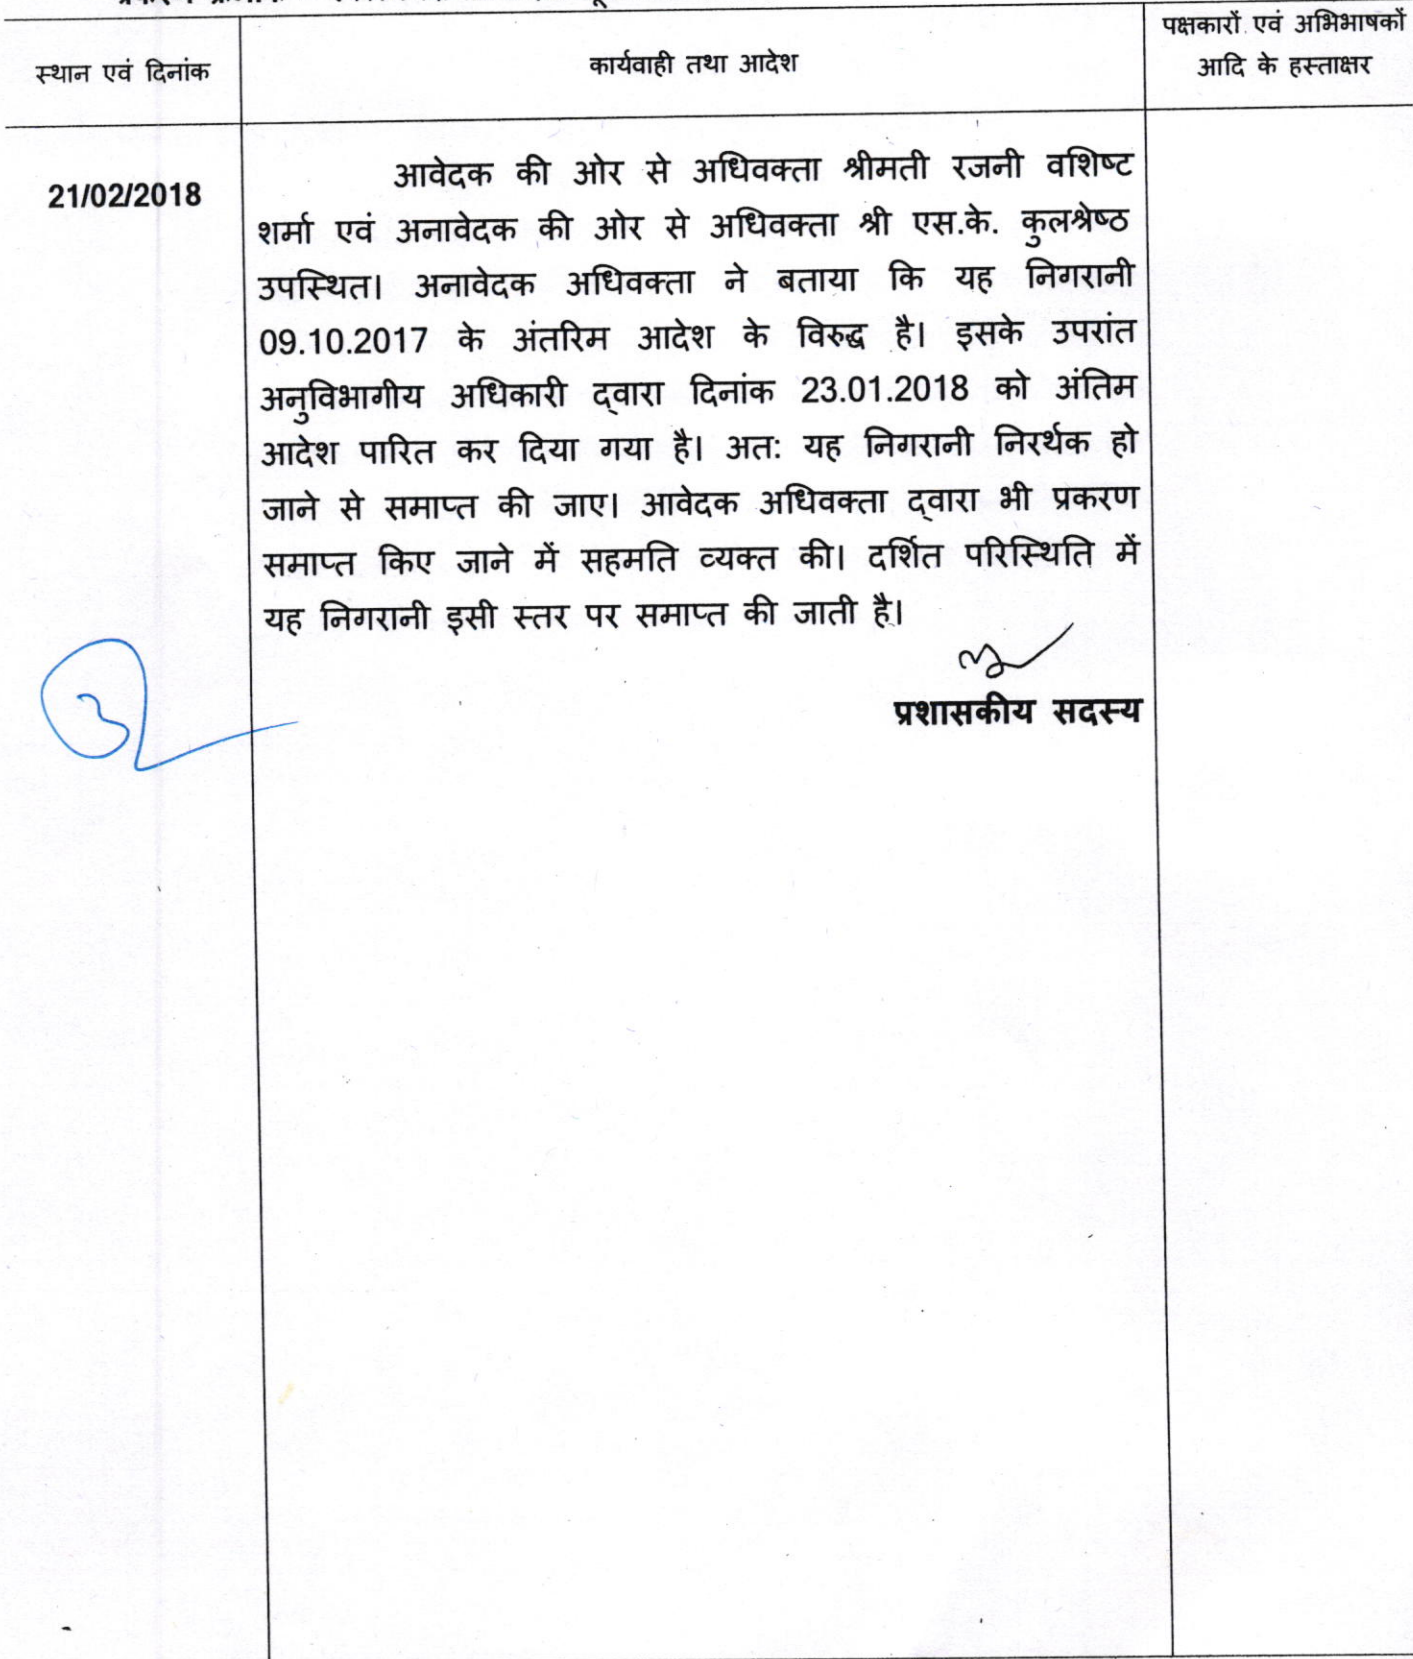 स्थान एवं दिनांक
कार्यवाही तथा आदेश
पक्षकारों एवं अभिभाषकों
आदि के हस्ताक्षर
21/02/2018
आवेदक की ओर से अधिवक्ता श्रीमती रजनी वशिष्ट
शर्मा एवं अनावेदक की ओर से अधिवक्ता श्री एस.के. कुलश्रेष्ठ
उपस्थित। अनावेदक अधिवक्ता ने बताया कि यह निगरानी
09.10.2017 के अंतरिम आदेश के विरुद्ध है। इसके उपरांत
अनुविभागीय अधिकारी द्वारा दिनांक 23.01.2018 को अंतिम
आदेश पारित कर दिया गया है। अत: यह निगरानी निरर्थक हो
जाने से समाप्त की जाए। आवेदक अधिवक्ता द्वारा भी प्रकरण
समाप्त किए जाने में सहमति व्यक्त की। दर्शित परिस्थिति में
यह निगरानी इसी स्तर पर समाप्त की जाती है।
प्रशासकीय सदस्य